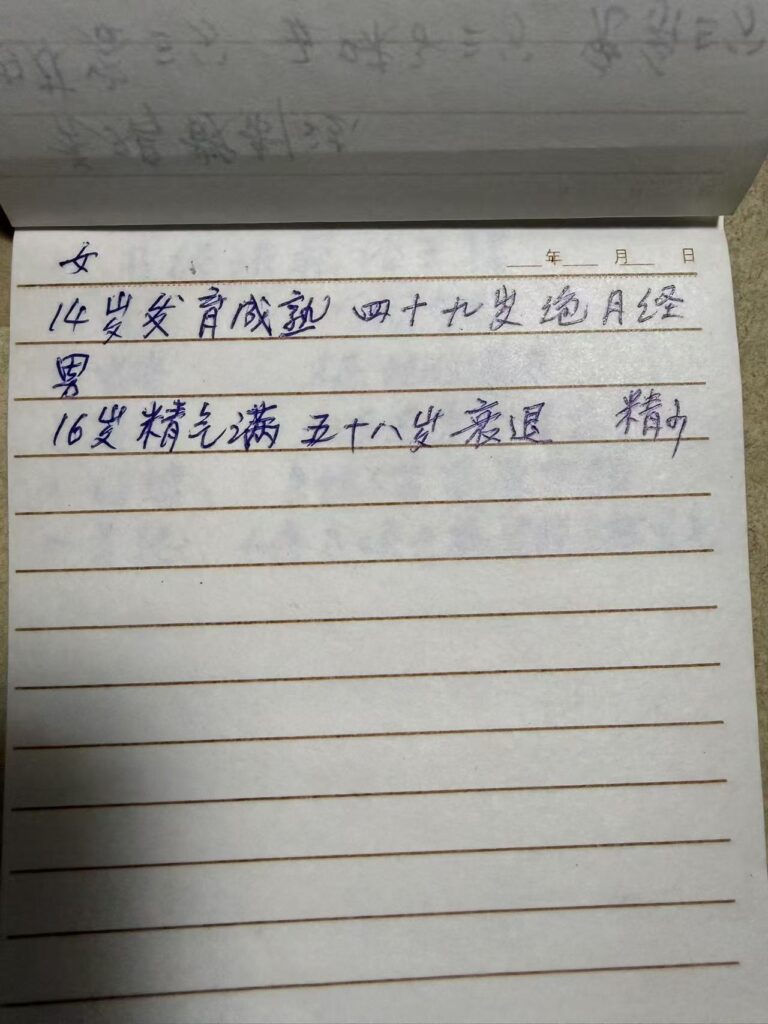 女
___年___月___日
14岁发育成熟 四十九岁绝月经
男
16岁精气满 五十八岁衰退 精少